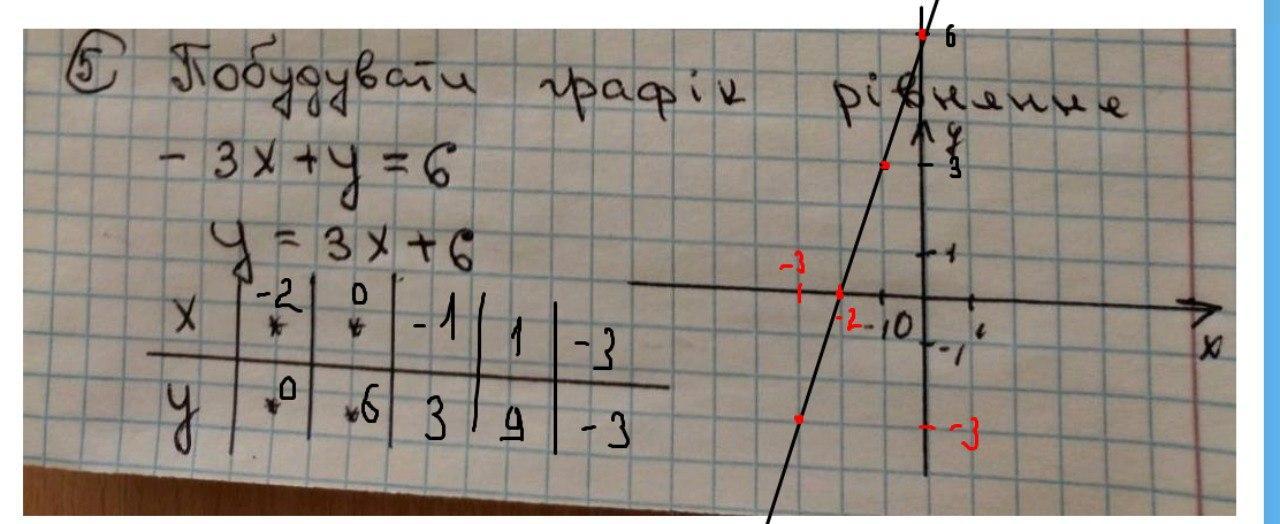 5 Побудувати графік рівняння
- 3x + y = 6
y = 3x + 6
x -2 0 -1 1 -3
y 0 6 3 9 -3
6
y
3
1
-3
-2 -1 0 1
x
-1
-3